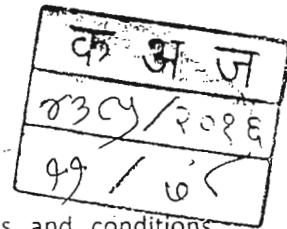 क अ ज
४३८५/२०१६
११ /
and conditions